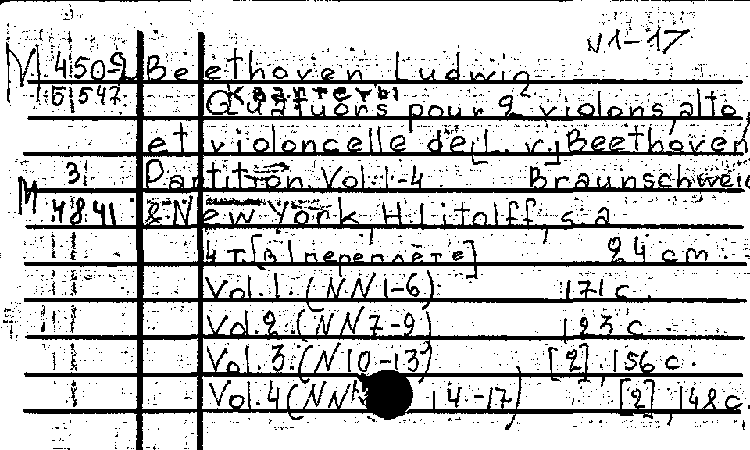 N 1-17
M 450-2 Beethoven Ludwig
Б/547 Квартеты
Quatuors pour 2 violons, alto,
et violoncelle de [L. v.] Beethoven
3 Partition Vol. 1-4. Braunschweig
M 4841 & New York, H. Litolff, s.a.
4 т. [в 1 переплете] 24 cm.
Vol. 1. (NN 1-6) 171 с.
Vol. 2. (NN 7-9) 123 с.
Vol. 3. (N 10-13) [2], 156 с.
Vol. 4 (NN 14-17) [2], 148 с.